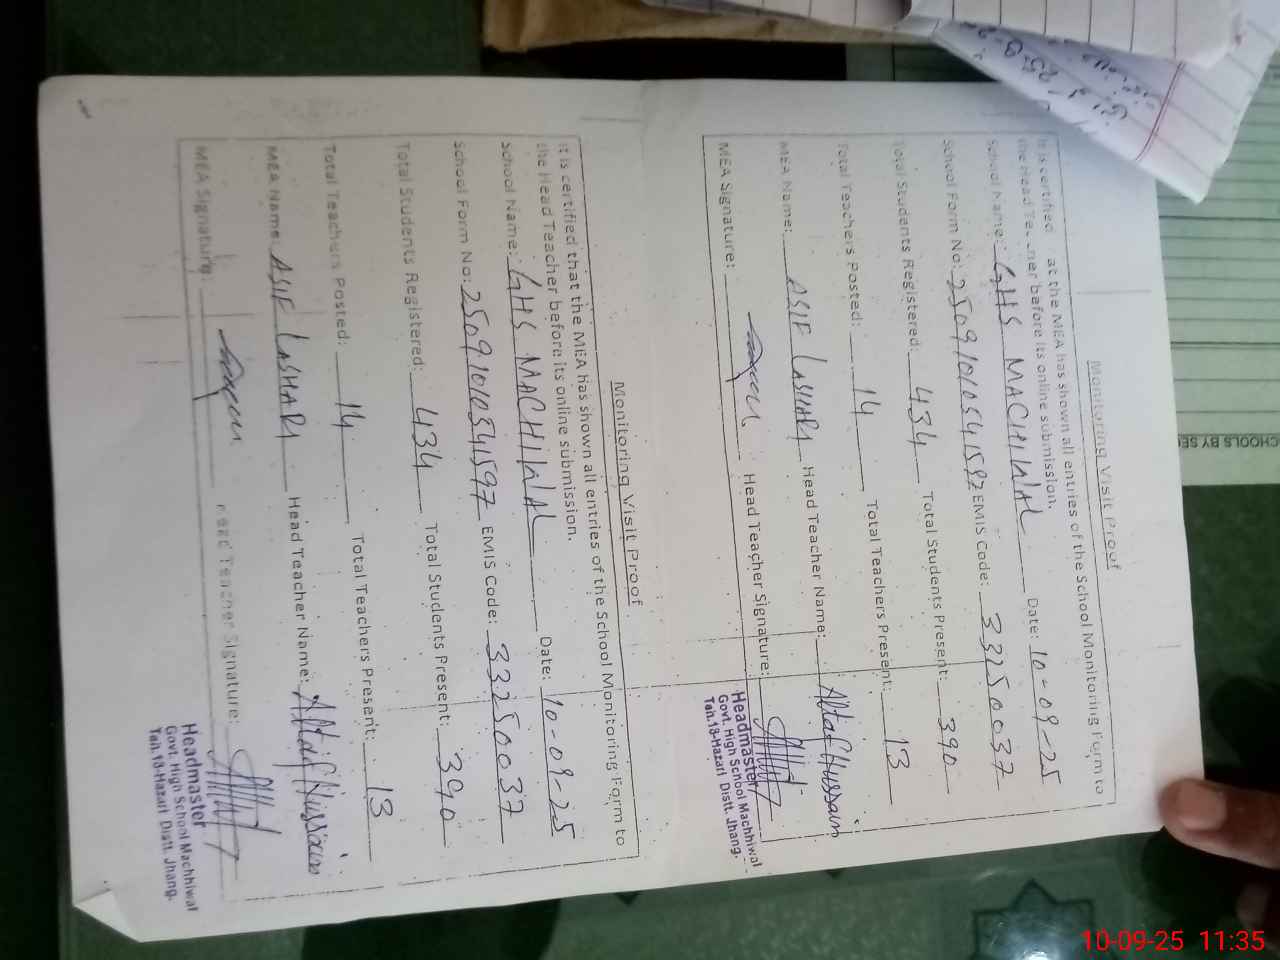 Monitoring Visit Proof
It is certified that the MEA has shown all entries of the School Monitoring Form to
the Head Teacher before its online submission.
School Name: GHS MACHIWAL Date: 10-09-25
School Form No: 2509101054597 EMIS Code: 33250037
Total Students Registered: 434 Total Students Present: 390
Total Teachers Posted: 14 Total Teachers Present: 13
MEA Name: ASIF LASHARI Head Teacher Name: Altaf Hussain
MEA Signature: Head Teacher Signature:
Headmaster
Govt. High School Machhiwal
Teh.18-Hazari Distt. Jhang.
Monitoring Visit Proof
It is certified that the MEA has shown all entries of the School Monitoring Form to
the Head Teacher before its online submission.
School Name: GHS MACHIWAL Date: 10-09-25
School Form No: 2509101054597 EMIS Code: 33250037
Total Students Registered: 434 Total Students Present: 390
Total Teachers Posted: 14 Total Teachers Present: 13
MEA Name: ASIF LASHARI Head Teacher Name: Altaf Hussain
MEA Signature: Head Teacher Signature:
Headmaster
Govt. High School Machhiwal
Teh.18-Hazari Distt. Jhang.
CHOOLS BY SE
10-09-25 11:35